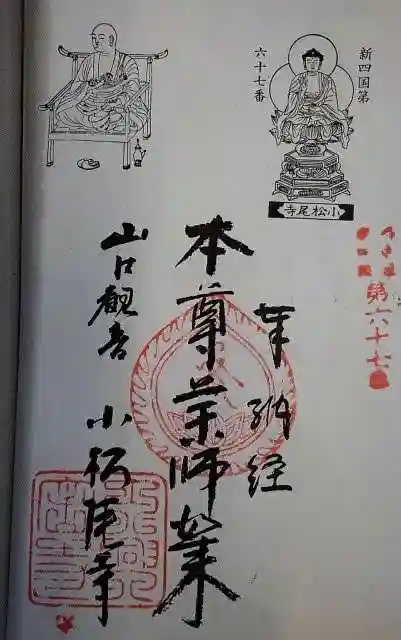 新四国第
六十七番
小松尾寺
第六十七
奉納経
本尊薬師如来
山口観音